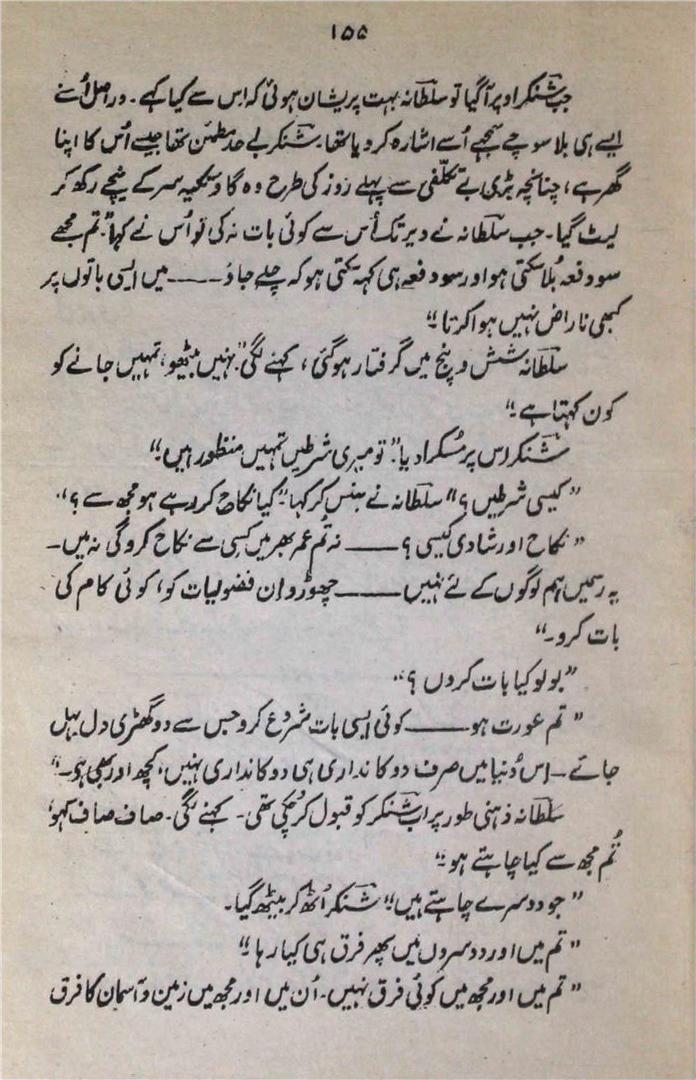 ۱۵۵
جب شنکر اوپر آ گیا تو سلطانہ بہت پریشان ہوئی کہ اس سے کیا کہے۔ دراصل اُسنے
ایسے ہی بلا سوچے سمجھے اُسے اشارہ کر دیا تھا۔ شنکر بے حد مطمئن تھا جیسے اُس کا اپنا
گھر ہے، چنانچہ بڑی بے تکلّفی سے پہلے روز کی طرح وہ گاؤ تکیہ سر کے نیچے رکھ کر
لیٹ گیا۔ جب سلطانہ نے دیر تک اُس سے کوئی بات نہ کی تو اُس نے کہا۔ "تم مجھے
سو دفعہ بُلا سکتی ہو اور سو دفعہ ہی کہہ سکتی ہو کہ چلے جاؤ ـــــ میں ایسی باتوں پر
کبھی ناراض نہیں ہوا کرتا۔"
سلطانہ شش و پنج میں گرفتار ہو گئی، کہنے لگی۔ "نہیں بیٹھو، تمہیں جانے کو
کون کہتا ہے۔"
شنکر اس پر مُسکرا دیا۔ "تو میری شرطیں تمہیں منظور ہیں۔"
"کیسی شرطیں؟" سلطانہ نے ہنس کر کہا۔ "کیا نکاح کر رہے ہو مجھ سے؟"
"نکاح اور شادی کیسی؟ ـــــ نہ تم عمر بھر میں کسی سے نکاح کرو گی نہ میں۔
یہ رسمیں ہم لوگوں کے لئے نہیں ـــــ چھوڑو ان فضولیات کو، کوئی کام کی
بات کرو۔"
"بولو کیا بات کروں؟"
"تم عورت ہو ـــــ کوئی ایسی بات شروع کرو جس سے دو گھڑی دل بہل
جائے۔ اس دُنیا میں صرف دوکانداری ہی دوکانداری نہیں، کچھ اور بھی ہے۔"
سلطانہ ذہنی طور پر اب شنکر کو قبول کر چُکی تھی۔ کہنے لگی۔ صاف صاف کہو،
تُم مجھ سے کیا چاہتے ہو۔"
"جو دوسرے چاہتے ہیں۔" شنکر اُٹھ کر بیٹھ گیا۔
"تم میں اور دوسروں میں پھر فرق ہی کیا رہا۔"
"تم میں اور مجھ میں کوئی فرق نہیں۔ اُن میں اور مجھ میں زمین و آسمان کا فرق